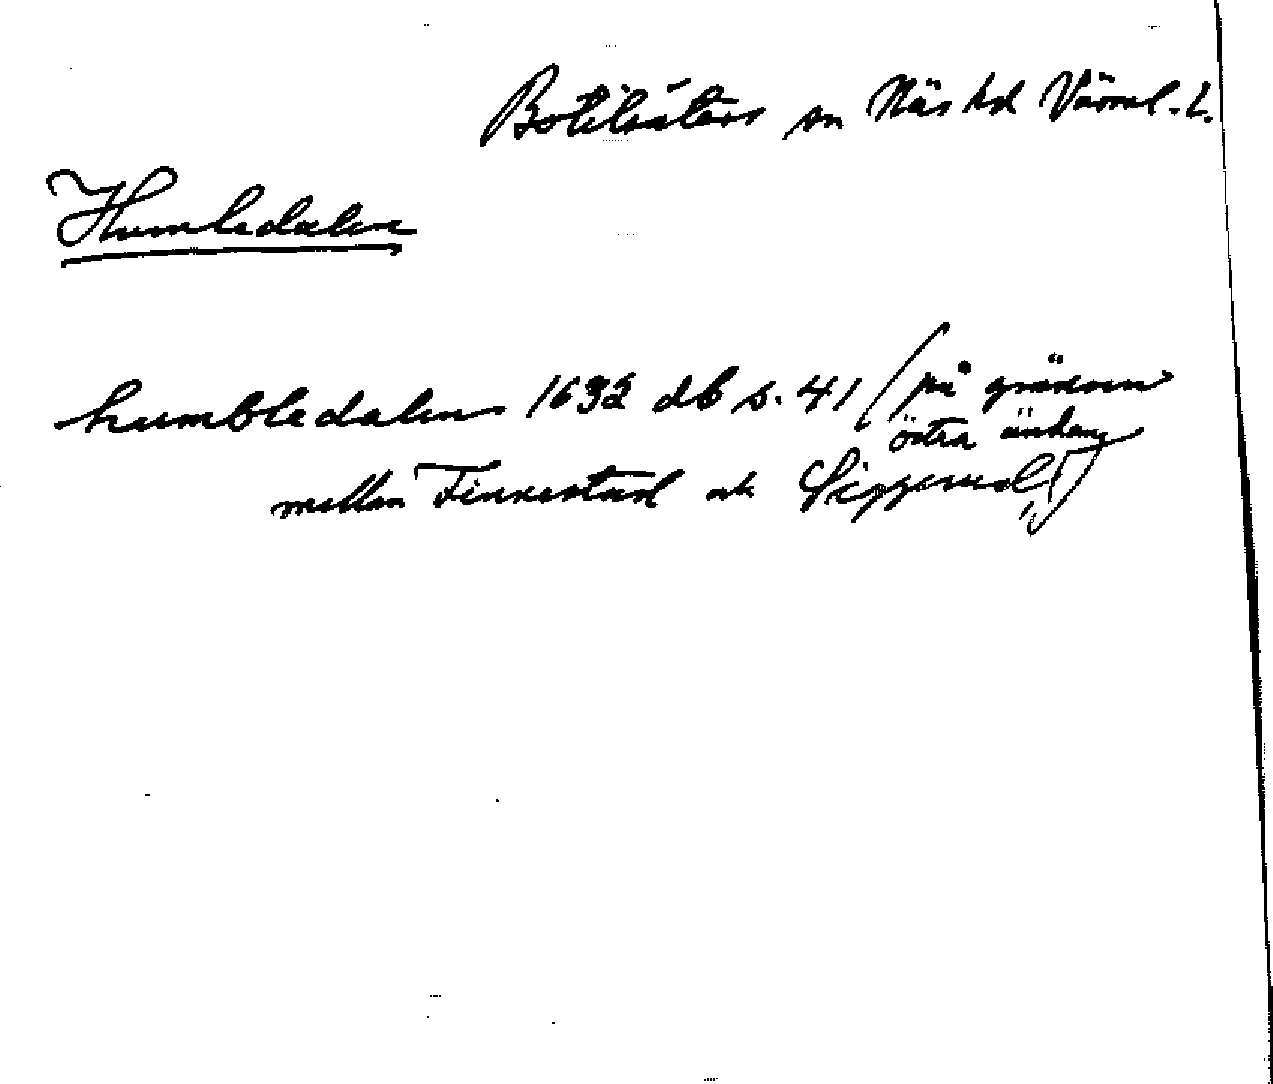 Botilsäters sn Näs hd Värml. l.
Humledalen
humbledalen 1632 db s. 41 (på gränsen
östra ändan
mellan Finnestad och Sipperud)